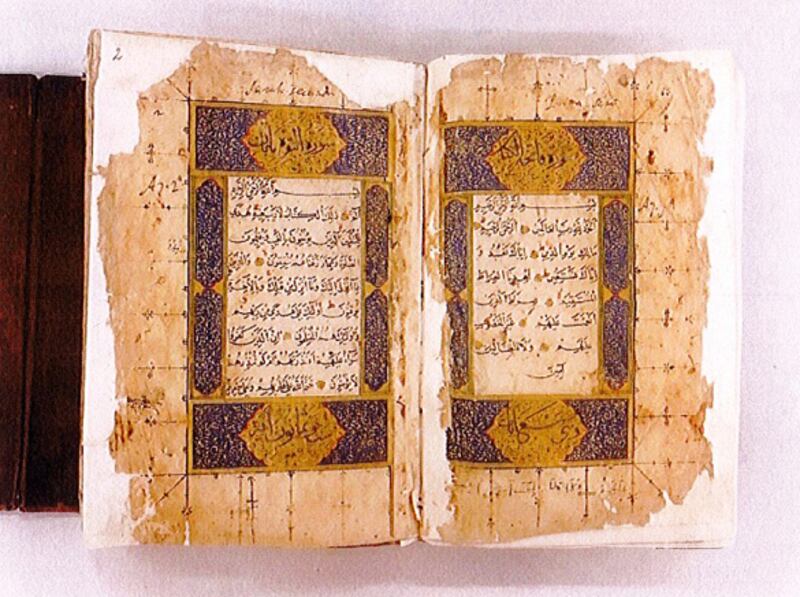 سورة فاتحة الكتاب
بسم الله الرحمن الرحيم
الحمد لله رب العالمين الرحمن الرحيم
مالك يوم الدين اياك نعبد و
اياك نستعين اهدنا الصراط
المستقيم صراط الذين
انعمت عليهم غير المغضوب
عليهم ولا الضالين
امين
وهي سبع ايات
2
سورة البقرة
بسم الله الرحمن الرحيم
الم ذلك الكتاب لا ريب فيه هدى
للمتقين الذين يؤمنون بالغيب ويقيمون
الصلوة ومما رزقناهم ينفقون والذين
بما انزل اليك وما انزل من قبلك وبالاخرة
يوقنون اولئك على هدى من ربهم
واولئك هم المفلحون ان الذين كفروا
سواء عليهم ءانذرتهم ام لم تنذرهم
لا يؤمنون ختم الله على قلوبهم وعلى